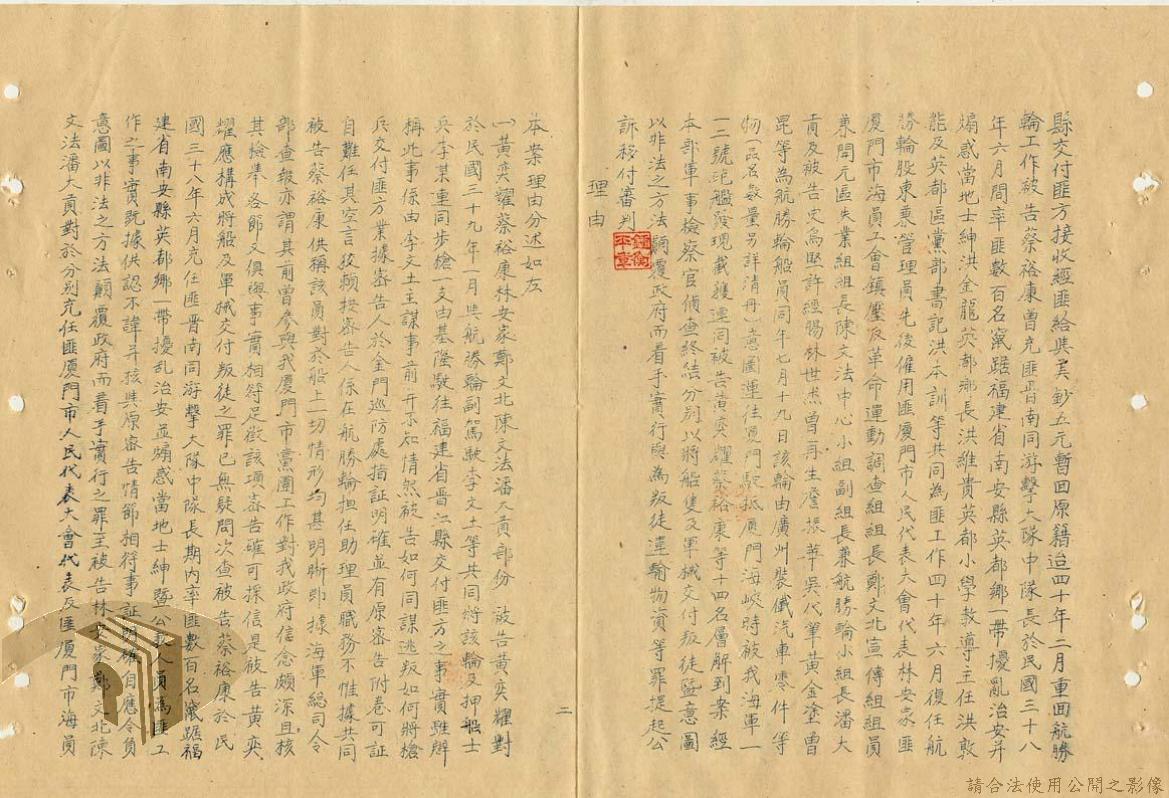 縣交付匪方接收經匪給與美鈔五元暫回原籍迨四十年二月重回航勝
輪工作被告蔡裕康曾充匪晋南同游擊大隊中隊長於民國三十八
年六月間率匪數百名竄踞福建省南安縣英都鄉一帶擾亂治安并
煽惑當地士紳洪金龍英都鄉長洪維貴英都小學教導主任洪敦
能及英都區黨部書記洪本訓等共同為匪工作四十年六月復任航
勝輪股東兼管理員先後僱用匪廈門市人民代表大會代表林安家匪
廈門市海員工會鎮壓反革命運動調查組組長鄭文北宣傳組組員
兼開元區失業組組長陳文法中心小組副組長兼航勝輪小組長潘大
貢及被告史為堅許經賜林世杰曾再生詹振華吳代篳黃金塗曾
毘等為航勝輪船員同年七月十九日該輪由廣州裝儀汽車零件等
物(品名數量另詳清冊)意圖運往廈門駛抵廈門海峽時被我海軍一
一二號砲艦發現截獲連同被告黃奕耀蔡裕康等十四名層解到案經
本部軍事檢察官偵查終結分別以將船隻及軍械交付叛徒暨意圖
以非法之方法顛覆政府而着手實行與為叛徒運輸物資等罪提起公
訴移付審判
理由
二
本案理由分述如左
一黃奕耀蔡裕康林安家鄭文北陳文法潘大貢部份 被告黃奕耀對
於民國三十九年一月與航勝輪副駕駛李文土等共同將該輪及押船士
兵李某連同步槍一支由基隆駛往福建省晋江縣交付匪方之事實雖辯
稱此事係由李文土主謀事前并不知情然被告如何同謀逃叛如何將槍
兵交付匪方業據密告人於金門巡防處指証明確並有原密告附卷可証
自難任其空言狡賴按密告人係在航勝輪担任助理員職務不惟據共同
被告蔡裕康供稱該員對於船上一切情形均甚明晰即據海軍總司令
部查報亦謂其前曾參與我廈門市黨團工作對我政府信念頗深且核
其檢舉各節又俱與事實相符足徵該項密告確可採信是被告黃奕
耀應構成將船及軍械交付叛徒之罪已無疑問次查被告蔡裕康於民
國三十八年六月充任匪晋南同游擊大隊中隊長期內率匪數百名竄踞福
建省南安縣英都鄉一帶擾乱治安並煽惑當地士紳暨公教人員為匪工
作之事實既據供認不諱并核與原密告情節相符事証明確自應令負
意圖以非法之方法顛覆政府而着手實行之罪至被告林安家鄭文北陳
文法潘大貢對於分別充任匪廈門市人民代表大會代表及匪廈門市海員
請合法使用公開之影像